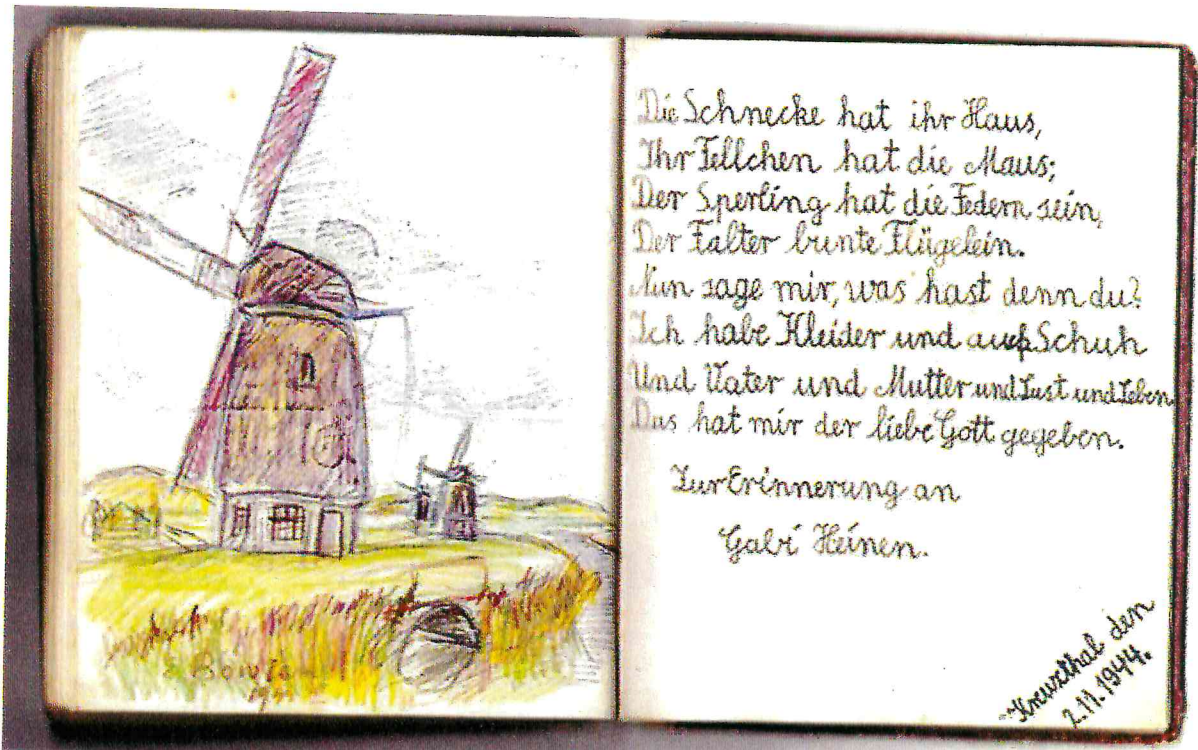 Die Schnecke hat ihr Haus,
Ihr Fellchen hat die Maus;
Der Sperling hat die Federn sein,
Der Falter bunte Flügelein.
Nun sage mir, was hast denn du?
Ich habe Kleider und auch Schuh
Und Vater und Mutter und Lust und Leben
Das hat mir der liebe Gott gegeben.
Zur Erinnerung an
Gabi Heinen.
Kreuzthal den
2.11.1944.